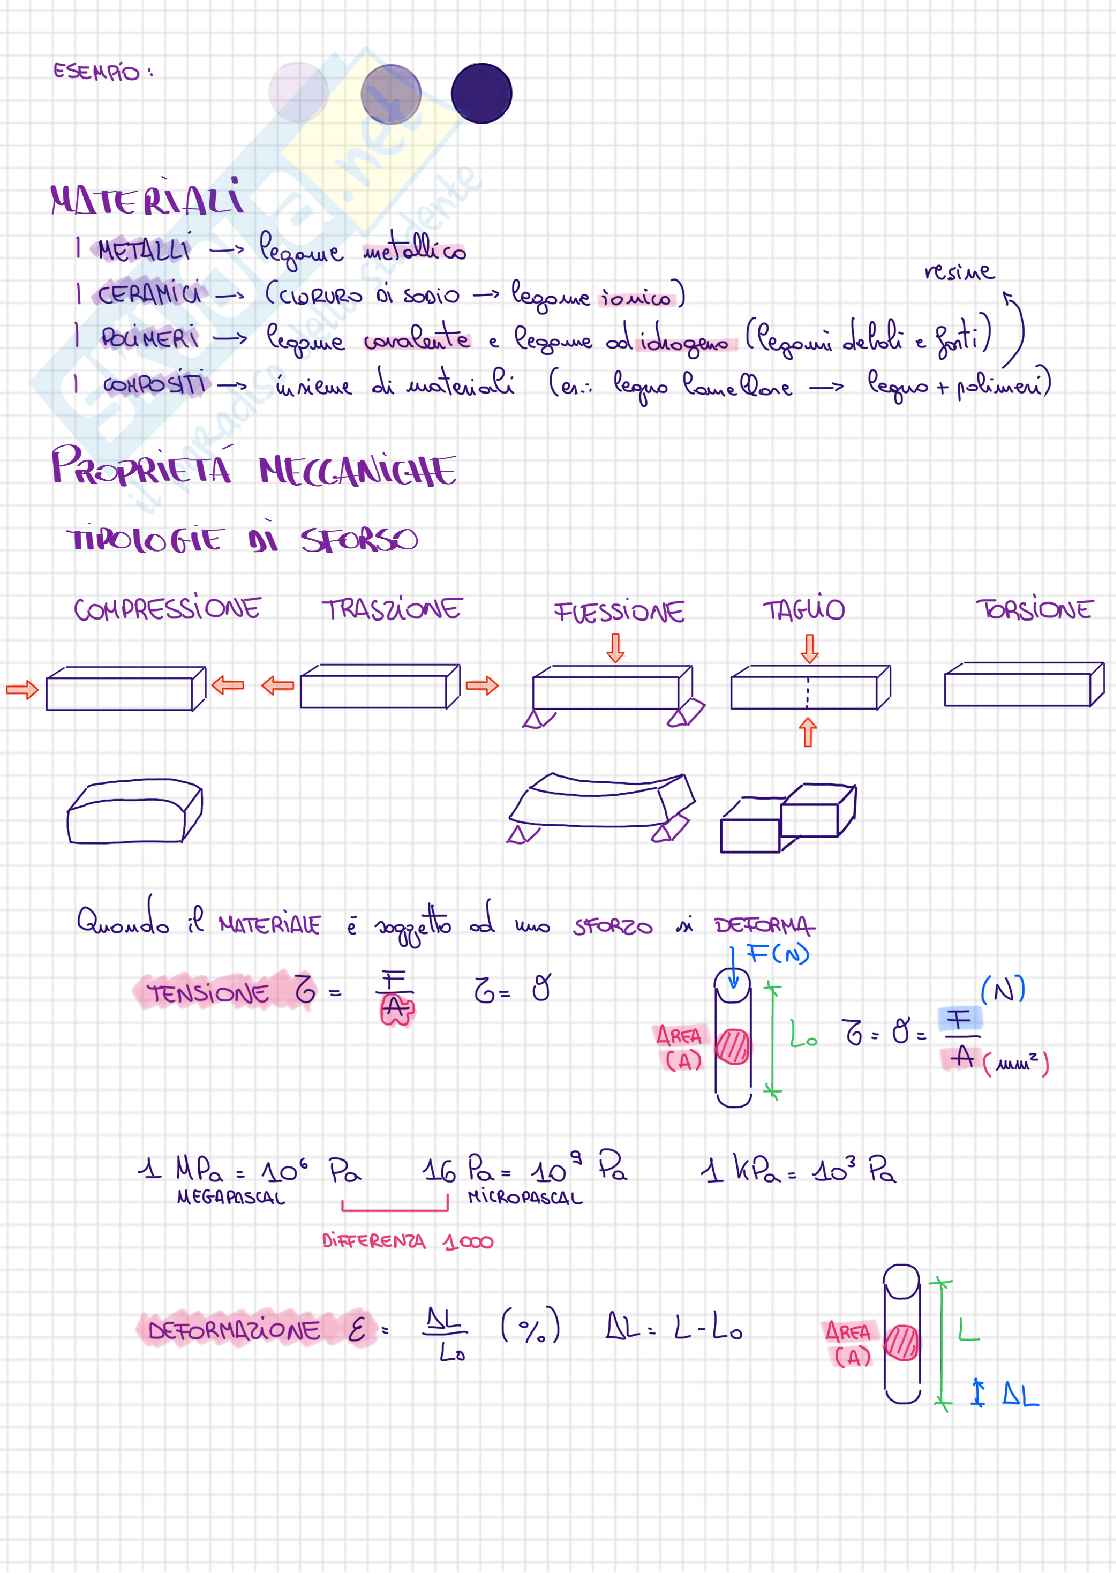 ESEMPIO:
MATERIALI
METALLI → legame metallico
resine
CERAMICI → (CLORURO DI SODIO → legame ionico)
POLIMERI → legame covalente e legame ad idrogeno (legami deboli e forti)
COMPOSITI → insieme di materiali (es.: legno lamellare → legno + polimeri)
PROPRIETÁ MECCANICHE
TIPOLOGIE DI SFORSO
COMPRESSIONE TRASZIONE FLESSIONE TAGLIO TORSIONE
Quando il MATERIALE é soggetto ad uno SFORZO si DEFORMA
F(N)
TENSIONE τ = F/A τ = σ
AREA (A)
L₀
τ = σ = F/A (N) (mm²)
1 MPa = 10⁶ Pa 1G Pa = 10⁹ Pa 1 KPa = 10³ Pa
MEGAPASCAL MICROPASCAL
DIFFERENZA 1000
DEFORMAZIONE ε = ΔL/L₀ (%) ΔL = L - L₀
AREA (A)
L
ΔL
skuola.net
il paradiso dello studente